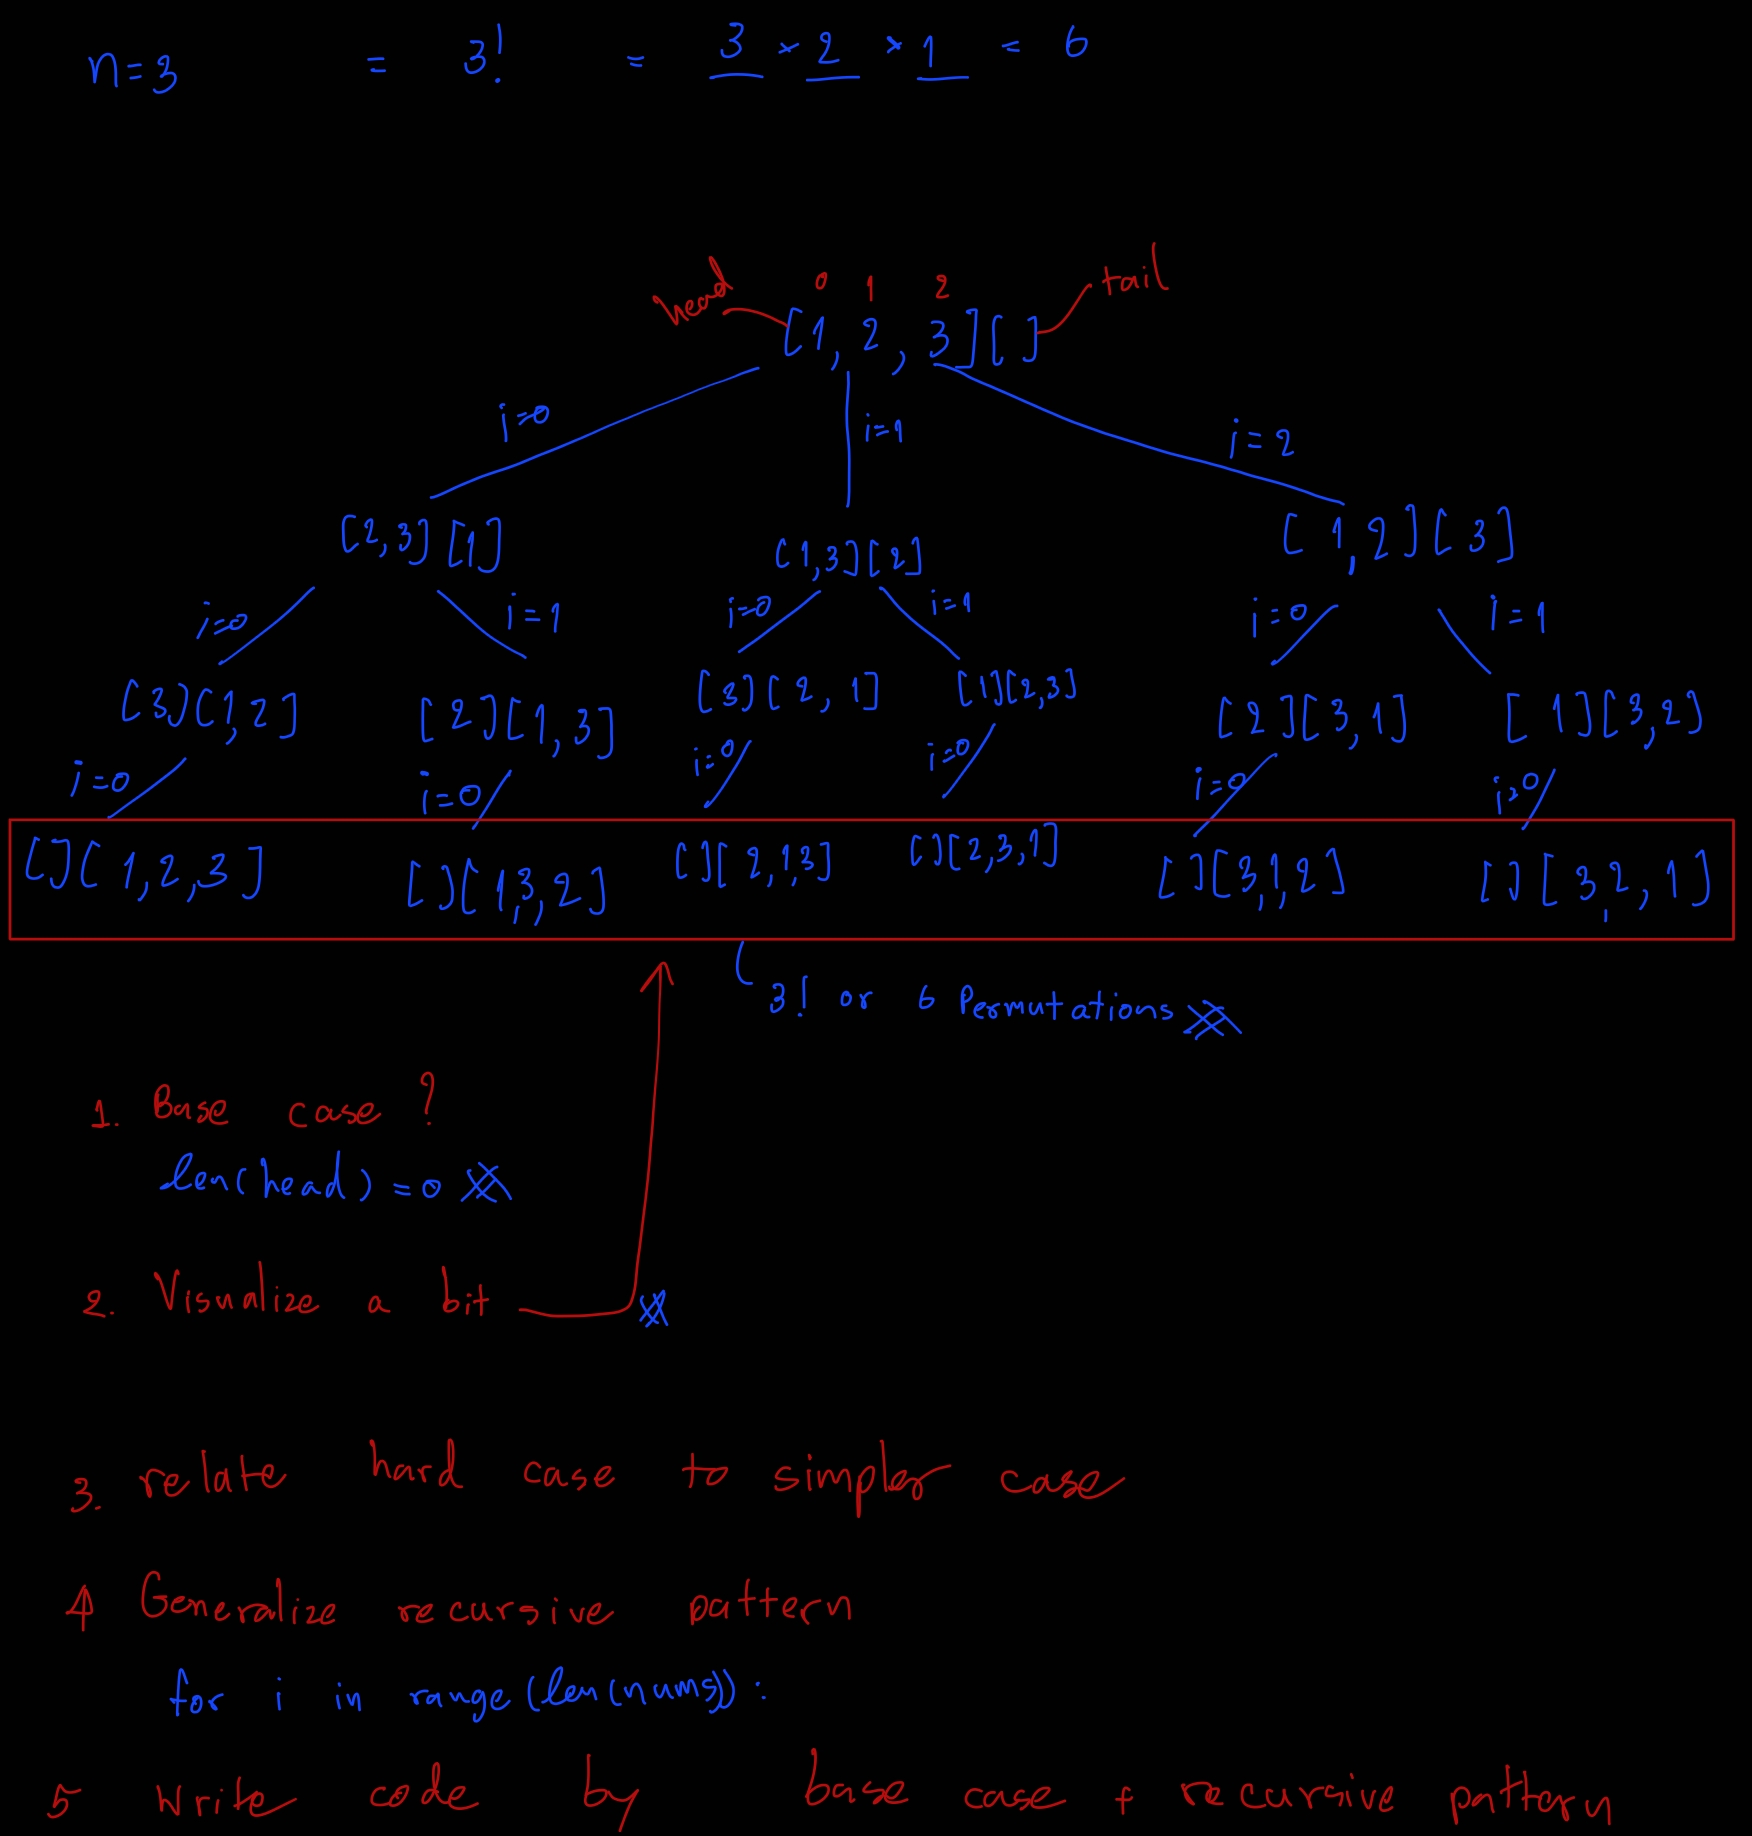 n=3 = 3! = 3 × 2 × 1 = 6
head 0 1 2 tail
[1, 2, 3][ ]
i=0 i=1 i=2
[2,3][1] [1,3][2] [1,2][3]
i=0 i=1 i=0 i=1 i=0 i=1
[3][1,2] [2][1,3] [3][2,1] [1][2,3] [2][3,1] [1][3,2]
i=0 i=0 i=0 i=0 i=0 i=0
[][1,2,3] [][1,3,2] [][2,1,3] [][2,3,1] [][3,1,2] [][3,2,1]
3! or 6 Permutations
1. Base case ?
len(head) = 0
2. Visualize a bit
3. relate hard case to simpler case
4 Generalize recursive pattern
for i in range(len(nums)):
5 Write code by base case + recursive pattern